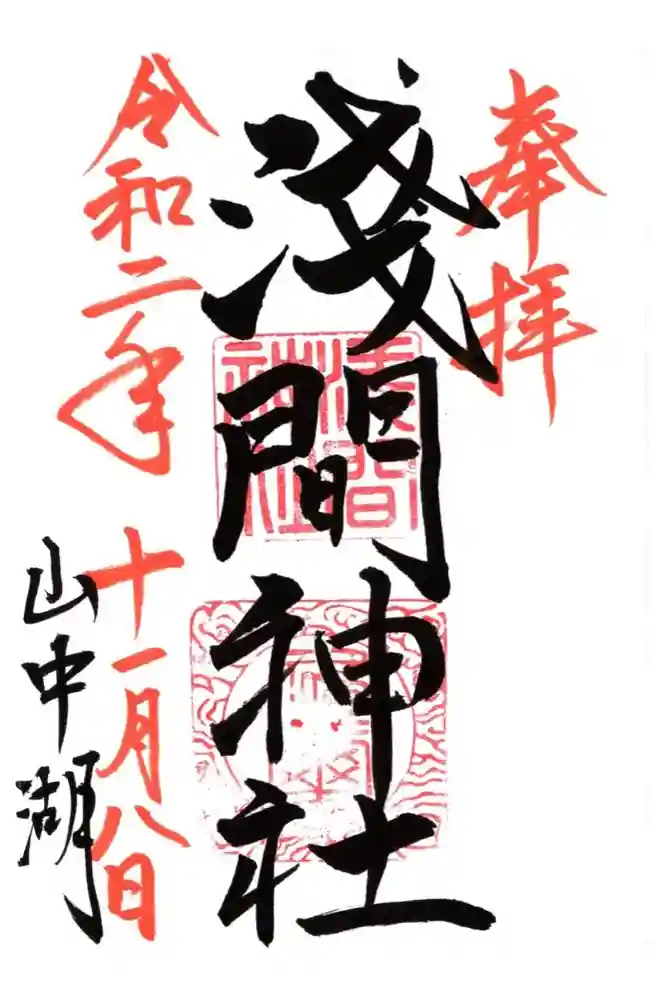 奉拝
淺間神社
令和二年十一月八日
山中湖